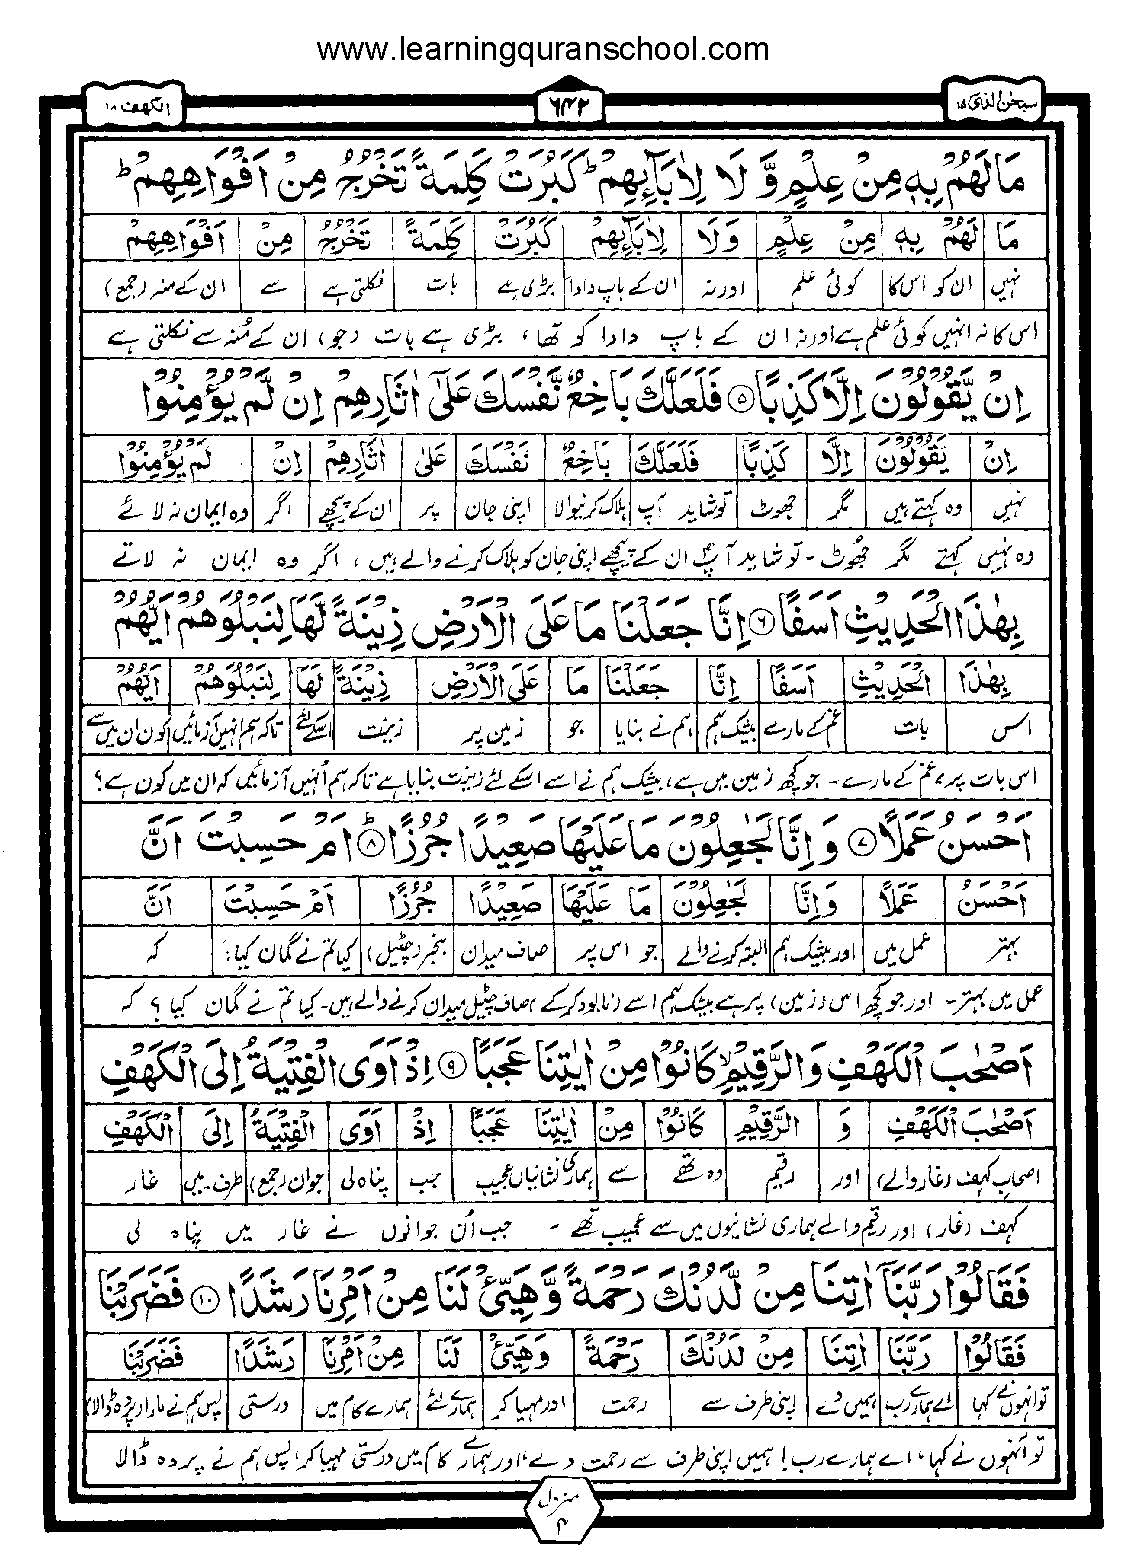 www.learningquranschool.com
سبحٰن الذی ۱۵ ۶۴۲ الکھف ۱۸
مَا لَهُمْ بِهٖ مِنْ عِلْمٍ وَّ لَا لِاٰبَآئِهِمْ ؕ كَبُرَتْ كَلِمَةً تَخْرُجُ مِنْ اَفْوَاهِهِمْ ؕ
مَا لَهُمْ بِهٖ مِنْ عِلْمٍ وَلَا لِاٰبَآئِهِمْ كَبُرَتْ كَلِمَةً تَخْرُجُ مِنْ اَفْوَاهِهِمْ
نہیں ان کو اس کا کوئی علم اور نہ ان کے باپ دادا بڑی ہے بات نکلتی ہے سے ان کے منہ (جمع)
اس کا نہ انہیں کوئی علم ہے اور نہ ان کے باپ دادا کو تھا، بڑی ہے بات (جو) ان کے مُنہ سے نکلتی ہے
اِنْ يَّقُوْلُوْنَ اِلَّا كَذِبًا ۵ فَلَعَلَّكَ بَاخِعٌ نَّفْسَكَ عَلٰۤى اٰثَارِهِمْ اِنْ لَّمْ يُؤْمِنُوْا
اِنْ يَقُوْلُوْنَ اِلَّا كَذِبًا فَلَعَلَّكَ بَاخِعٌ نَفْسَكَ عَلٰى اٰثَارِهِمْ اِنْ لَمْ يُؤْمِنُوْا
نہیں وہ کہتے ہیں مگر جھوٹ تو شاید آپ ہلاک کرنیوالا اپنی جان پر ان کے پیچھے اگر وہ ایمان نہ لائے
وہ نہیں کہتے مگر جھُوٹ - تو شاید آپؐ ان کے پیچھے اپنی جان کو ہلاک کرنے والے ہیں، اگر وہ ایمان نہ لاتے
بِهٰذَا الْحَدِيْثِ اَسَفًا ۶ اِنَّا جَعَلْنَا مَا عَلَى الْاَرْضِ زِيْنَةً لَّهَا لِنَبْلُوَهُمْ اَيُّهُمْ
بِهٰذَا الْحَدِيْثِ اَسَفًا اِنَّا جَعَلْنَا مَا عَلَى الْاَرْضِ زِيْنَةً لَهَا لِنَبْلُوَهُمْ اَيُّهُمْ
اس بات غم کے مارے بیشک ہم ہم نے بنایا جو زمین پر زینت اسکے لئے تاکہ ہم انہیں آزمائیں کون ان میں سے
اس بات پر، غم کے مارے - جو کچھ زمین میں ہے، بیشک ہم نے اسے اسکے لئے زینت بنایا ہے تاکہ ہم اُنہیں آزمائیں کہ ان میں کون ہے؟
اَحْسَنُ عَمَلًا ۷ وَ اِنَّا لَجٰعِلُوْنَ مَا عَلَيْهَا صَعِيْدًا جُرُزًا ؕ ۸ اَمْ حَسِبْتَ اَنَّ
اَحْسَنُ عَمَلًا وَاِنَّا لَجٰعِلُوْنَ مَا عَلَيْهَا صَعِيْدًا جُرُزًا اَمْ حَسِبْتَ اَنَّ
بہتر عمل میں اور بیشک ہم البتہ کرنے والے جو اس پر صاف میدان بنجر (چٹیل) کیا تم نے گمان کیا؟ کہ
عمل میں بہتر - اور جو کچھ اس (زمین) پر ہے بیشک ہم اسے (نابود کر کے) صاف چٹیل میدان کرنے والے ہیں - کیا تم نے گمان کیا؟ کہ
اَصْحٰبَ الْكَهْفِ وَالرَّقِيْمِ ۙ كَانُوْا مِنْ اٰيٰتِنَا عَجَبًا ۹ اِذْ اَوَى الْفِتْيَةُ اِلَى الْكَهْفِ
اَصْحٰبَ الْكَهْفِ وَ الرَّقِيْمِ كَانُوْا مِنْ اٰيٰتِنَا عَجَبًا اِذْ اَوَى الْفِتْيَةُ اِلَى الْكَهْفِ
اصحاب کہف (غار والے) اور رقیم وہ تھے سے ہماری نشانیاں عجیب جب پناہ لی جوان (جمع) طرف۔ میں غار
کہف (غار) اور رقیم والے ہماری نشانیوں میں سے عجیب تھے - جب اُن جوانوں نے غار میں پناہ لی
فَقَالُوْا رَبَّنَاۤ اٰتِنَا مِنْ لَّدُنْكَ رَحْمَةً وَّهَيِّئْ لَنَا مِنْ اَمْرِنَا رَشَدًا ۱۰ فَضَرَبْنَا
فَقَالُوْا رَبَّنَا اٰتِنَا مِنْ لَدُنْكَ رَحْمَةً وَهَيِّئْ لَنَا مِنْ اَمْرِنَا رَشَدًا فَضَرَبْنَا
تو انہوں نے کہا اے ہمارے رب ہمیں دے اپنی طرف سے رحمت اور مہیا کر ہمارے لئے ہمارے کام میں درستی پس ہم نے مارا (پردہ ڈالا)
تو اُنہوں نے کہا، اے ہمارے رب! ہمیں اپنی طرف سے رحمت دے، اور ہمارے کام میں درستی مہیا کر، پس ہم نے پردہ ڈالا
منزل ۴